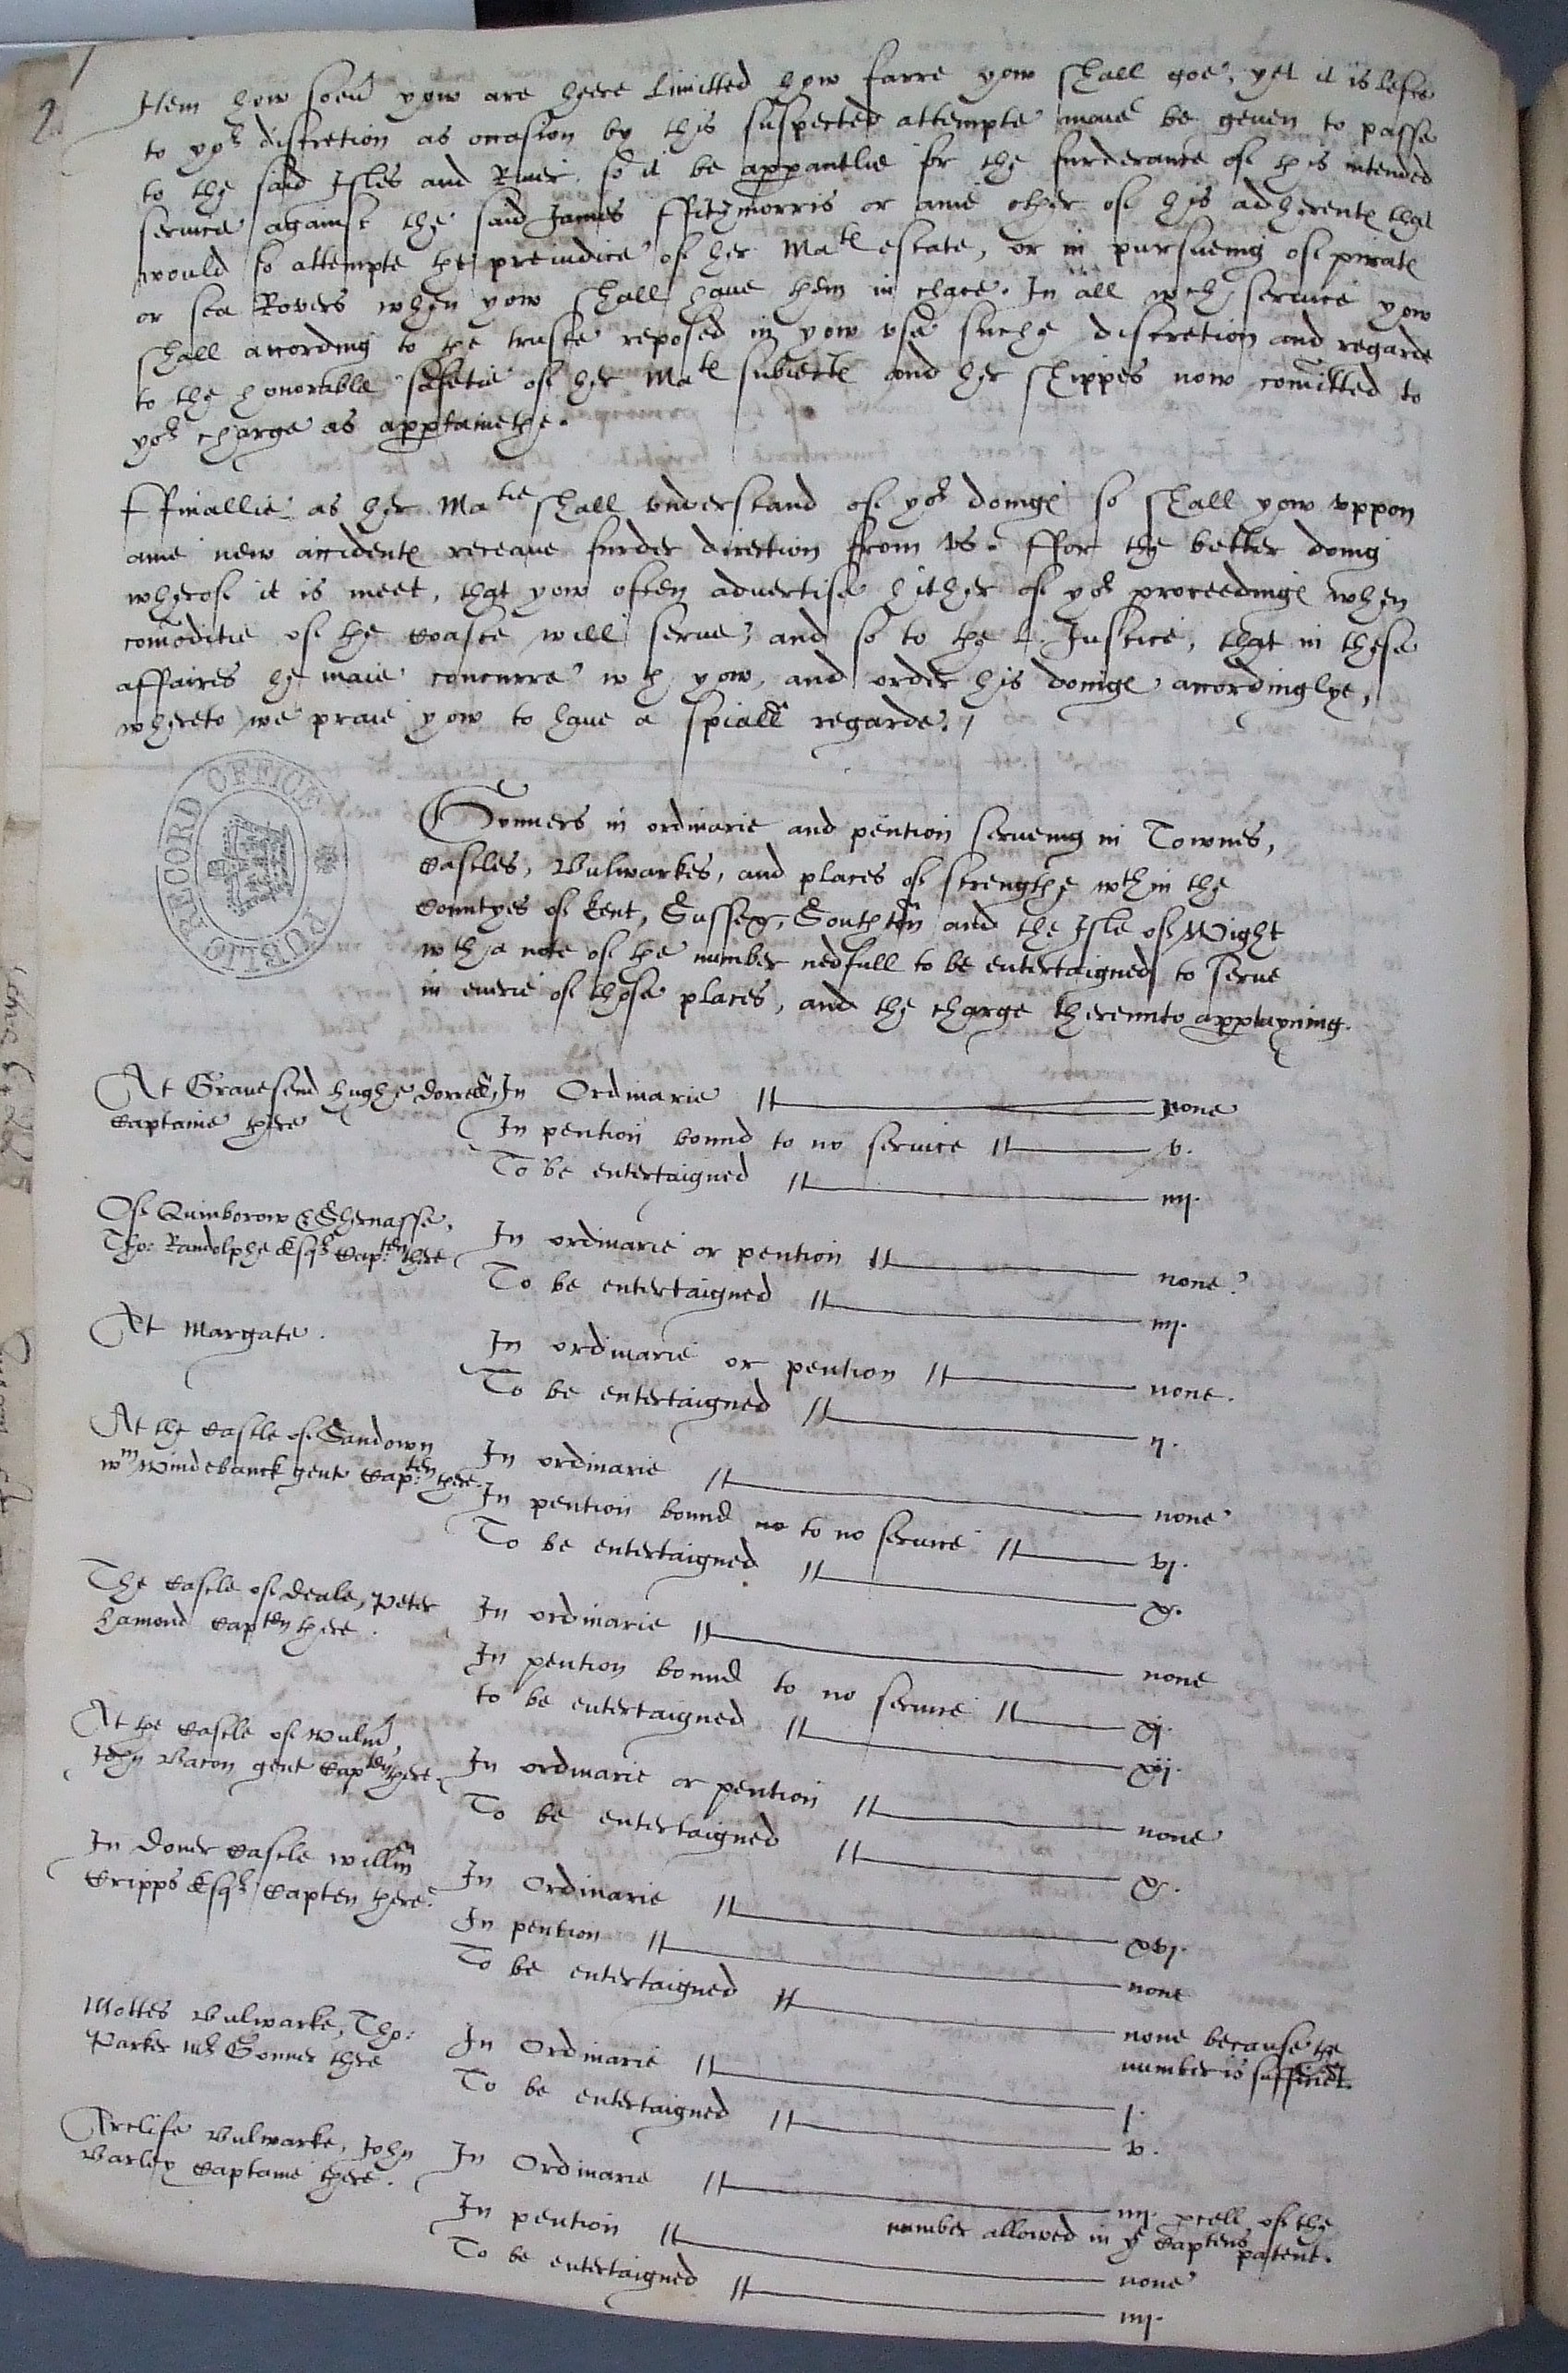 Item how soeu yow are heere Limitted how farre yow shall goe, yet it is lefte
to yor discretion as occasion by this suspected attempte maie be geuen to passe
to the said Isles and Riuer, so it be apparantlie for the furderance of this intended
seruice against the said James Ffitzmorris or anie other of his adherents that
would so attempte the preiudice of her Mats estate, or in pursueing of pirats
or sea Rovers when yow shall haue them in chace. In all wch seruice yow
shall according to the truste reposed in yow vse suche discretion and regarde
to the honorable safetie of her Mats subiects and her shippes now comitted to
yor charge as appertainethe.
Ffinallie as her Matie shall vnderstand of yor doings so shall yow vppon
anie new accidents receaue furder direction from vs. Ffor the better doing
wherof it is meet, that yow often aduertise hither of yor proceedings when
comoditie of the coaste will serue, and so to the L. Justice, that in these
affaires he maie concurre wth yow, and order his doings accordinglye,
whereto we praie yow to haue a spiall regarde. /
PUBLIC RECORD OFFICE
Gonners in ordinarie and pention serueing in Townes,
Castles, Bulwarkes, and places of strengthe wthin the
Countyes of Kent, Sussex, Southton and the Isle of Wight
wth a note of the number nedfull to be entertaigned to serue
in euerie of those places, and the charge therevnto appertayning.
At Grauesend hughe Dorrell, In Ordinarie none
Captaine there In pention bound to no seruice v.
To be entertaigned iiij.
Of Quinborow & Shernasse, In ordinarie or pention none.
Tho: Randolphe Esqr Capten there To be entertaigned iiij.
At Margate. In ordinarie or pention none.
To be entertaigned ij.
At the Castle of Sandown In ordinarie none
Wm Windebanck gent Capten there. In pention bound no to no seruice vj.
To be entertaigned x.
The Castle of Deale, Peter In ordinarie none
Hamond Capten there. In pention bound to no seruice xj.
to be entertaigned xij.
At the Castle of Walm, In ordinarie or pention none
John Bacon gent Capten there. To be entertaigned x.
In Douer Castle Willm In Ordinarie xvj.
Cripps Esqr Capten there. In pention none
To be entertaigned none because the
number is sufficiet.
Mottes Bulwarke, Tho: In Ordinarie j.
Parker Mr Gonner there To be entertaigned v.
Arclife Bulwarke, John In Ordinarie iiij. pcell of the
number allowed in ye Captens patent.
Barley Captaine there. In pention none
To be entertaigned iiij.